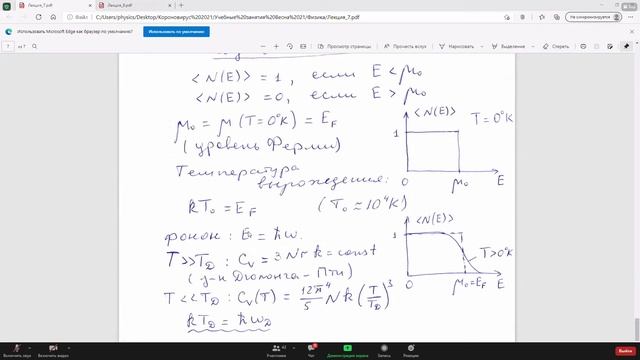 Лекция_7.pdf
Лекция_8.pdf
C:/Users/physics/Desktop/Короновирус%202021/Учебные%20занятия%20Весна%202021/Физика/Лекция_7.pdf
Использовать Microsoft Edge как браузер по умолчанию?
Использовать по умолчанию
7 из 7
<N(E)> = 1, если E < μ₀
<N(E)> = 0, если E > μ₀
μ₀ = μ (T = 0°K) = E_F
(уровень Ферми)
Температура
вырождения:
kT₀ = E_F (T₀ ≈ 10⁴K)
фонон: E₁ = ħω.
T >> T_D : C_V = 3Nrk = const
(з-н Дюлонга - Пти)
T << T_D : C_V(T) = 12π⁴/5 Nk (T/T_D)³
kT_D = ħω_D
<N(E)>
T = 0°K
1
0
μ₀
E
<N(E)>
1
T > 0°K
0
μ₀ = E_F
E
Включить звук
Включить видео
Участники
Чат
Демонстрация экрана
Запись
Реакции
Выйти